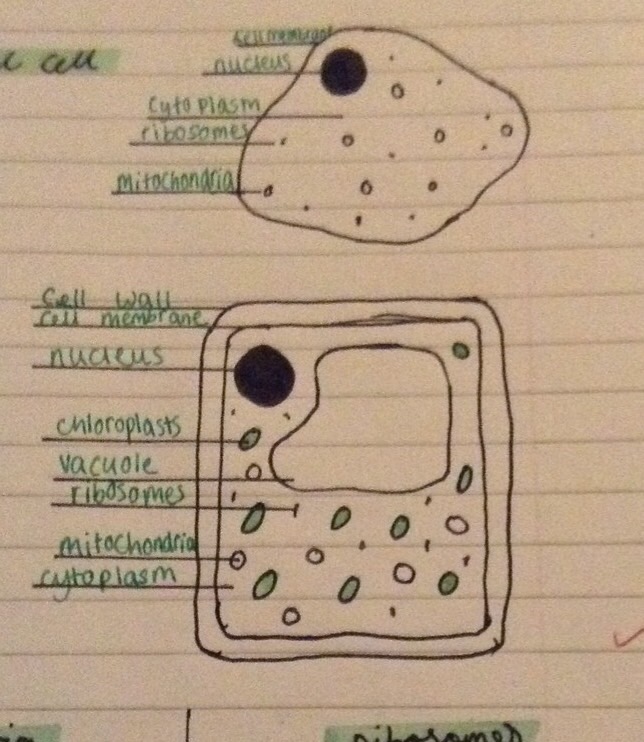 cell
cell membrane
nucleus
cytoplasm
ribosomes
mitochondria
Cell wall
cell membrane
nucleus
chloroplasts
vacuole
ribosomes
mitochondria
cytoplasm
ribosomes